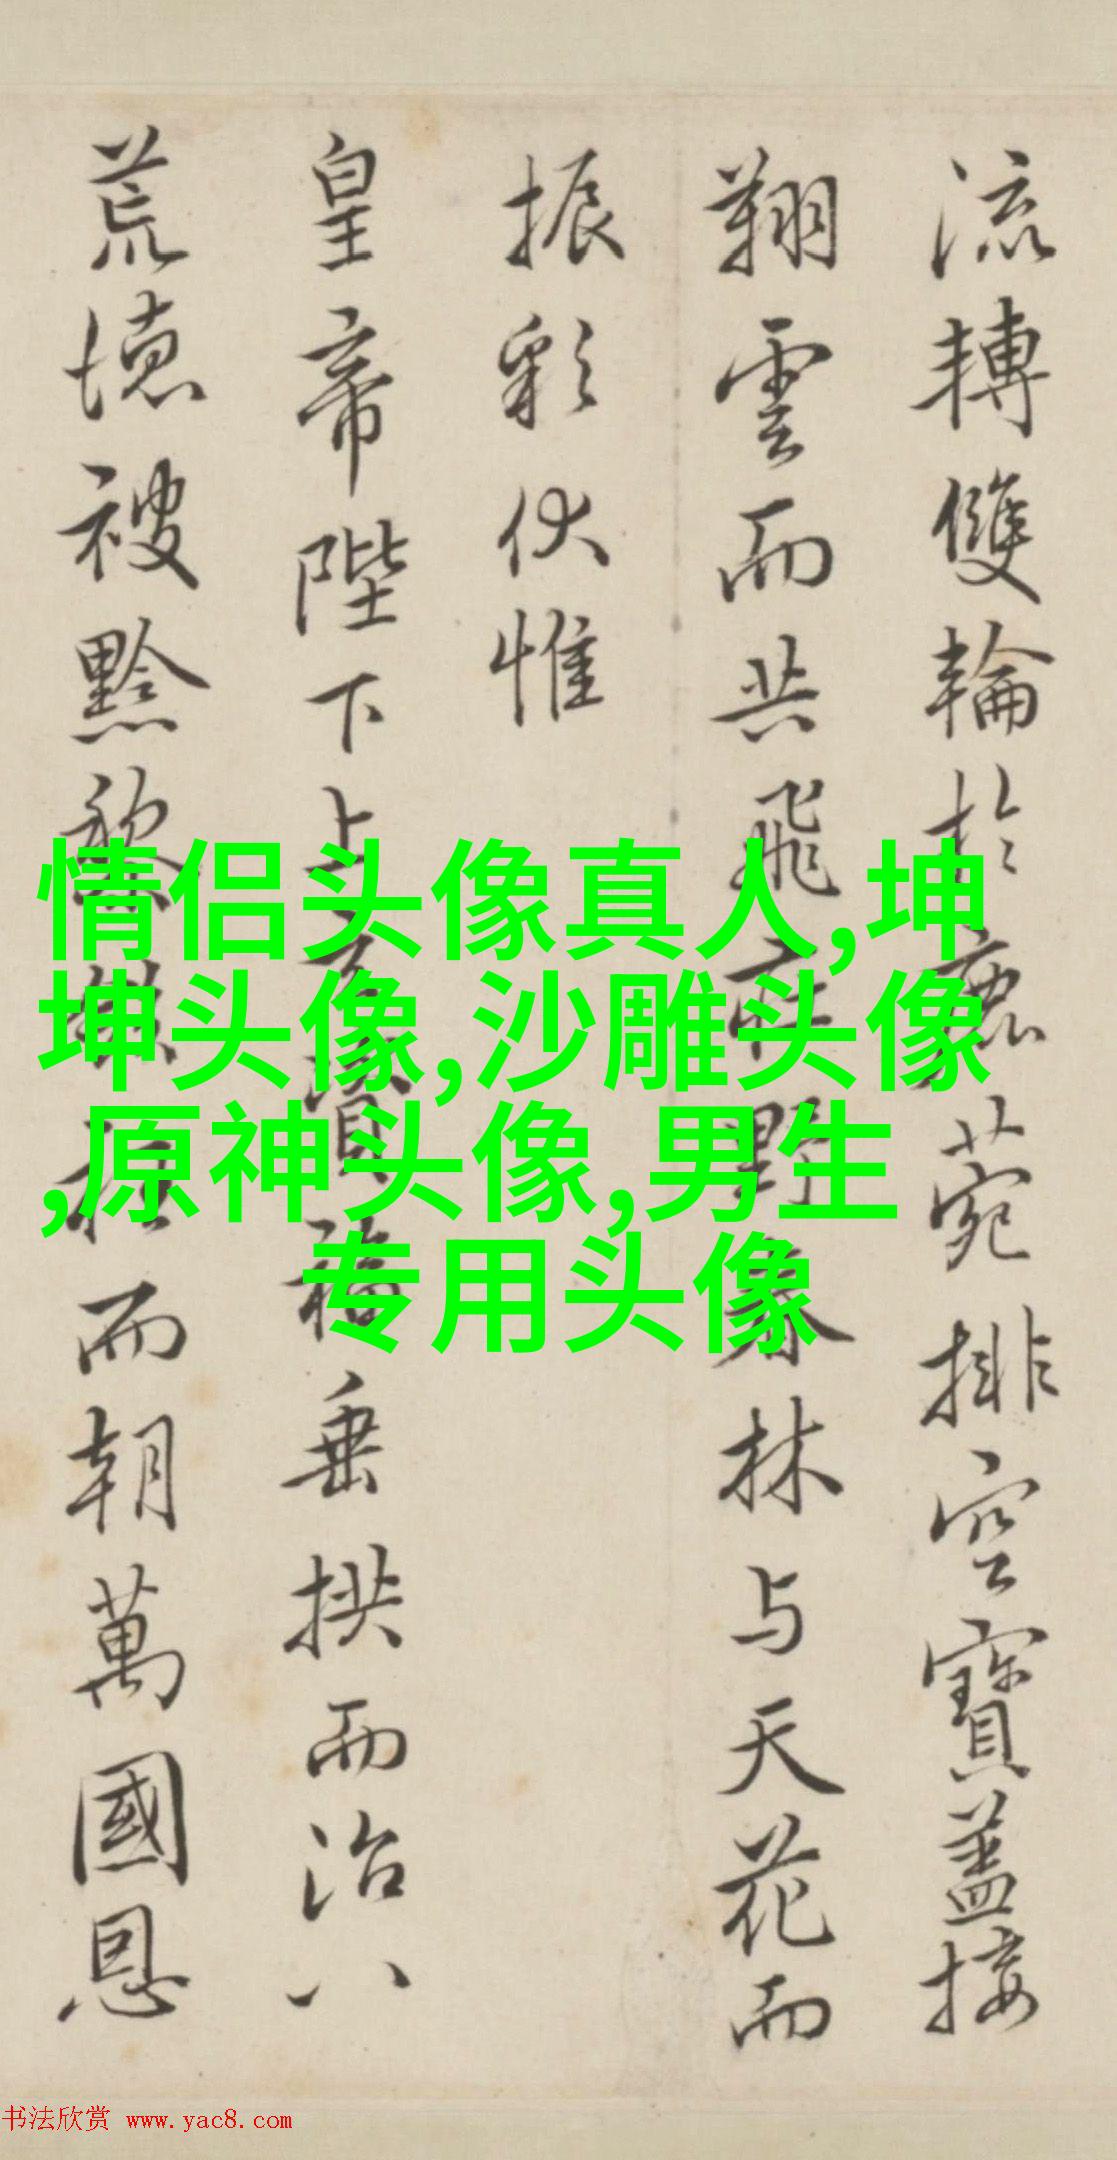 流转雙輪於鹿菀排空寶蓋接
翔雲而共飛莊野春林与天花而
振彩伏惟
皇帝陛下上玄資福垂拱而治八
荒德被黔黎斂衽而朝萬國恩
情侣头像真人,坤
坤头像,沙雕头像
,原神头像,男生
专用头像
书法欣赏 www.yac8.com